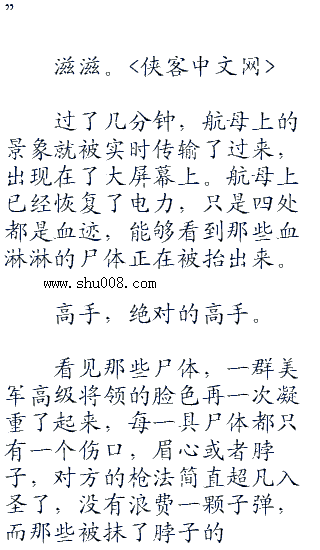 ”
滋滋。<侠客中文网>
过了几分钟，航母上的
景象就被实时传输了过来，
出现在了大屏幕上。航母上
已经恢复了电力，只是四处
都是血迹，能够看到那些血
淋淋的尸体正在被抬出来。
www.shu008.com
高手，绝对的高手。
看见那些尸体，一群美
军高级将领的脸色再一次凝
重了起来，每一具尸体都只
有一个伤口，眉心或者脖
子，对方的枪法简直超凡入
圣了，没有浪费一颗子弹，
而那些被抹了脖子的